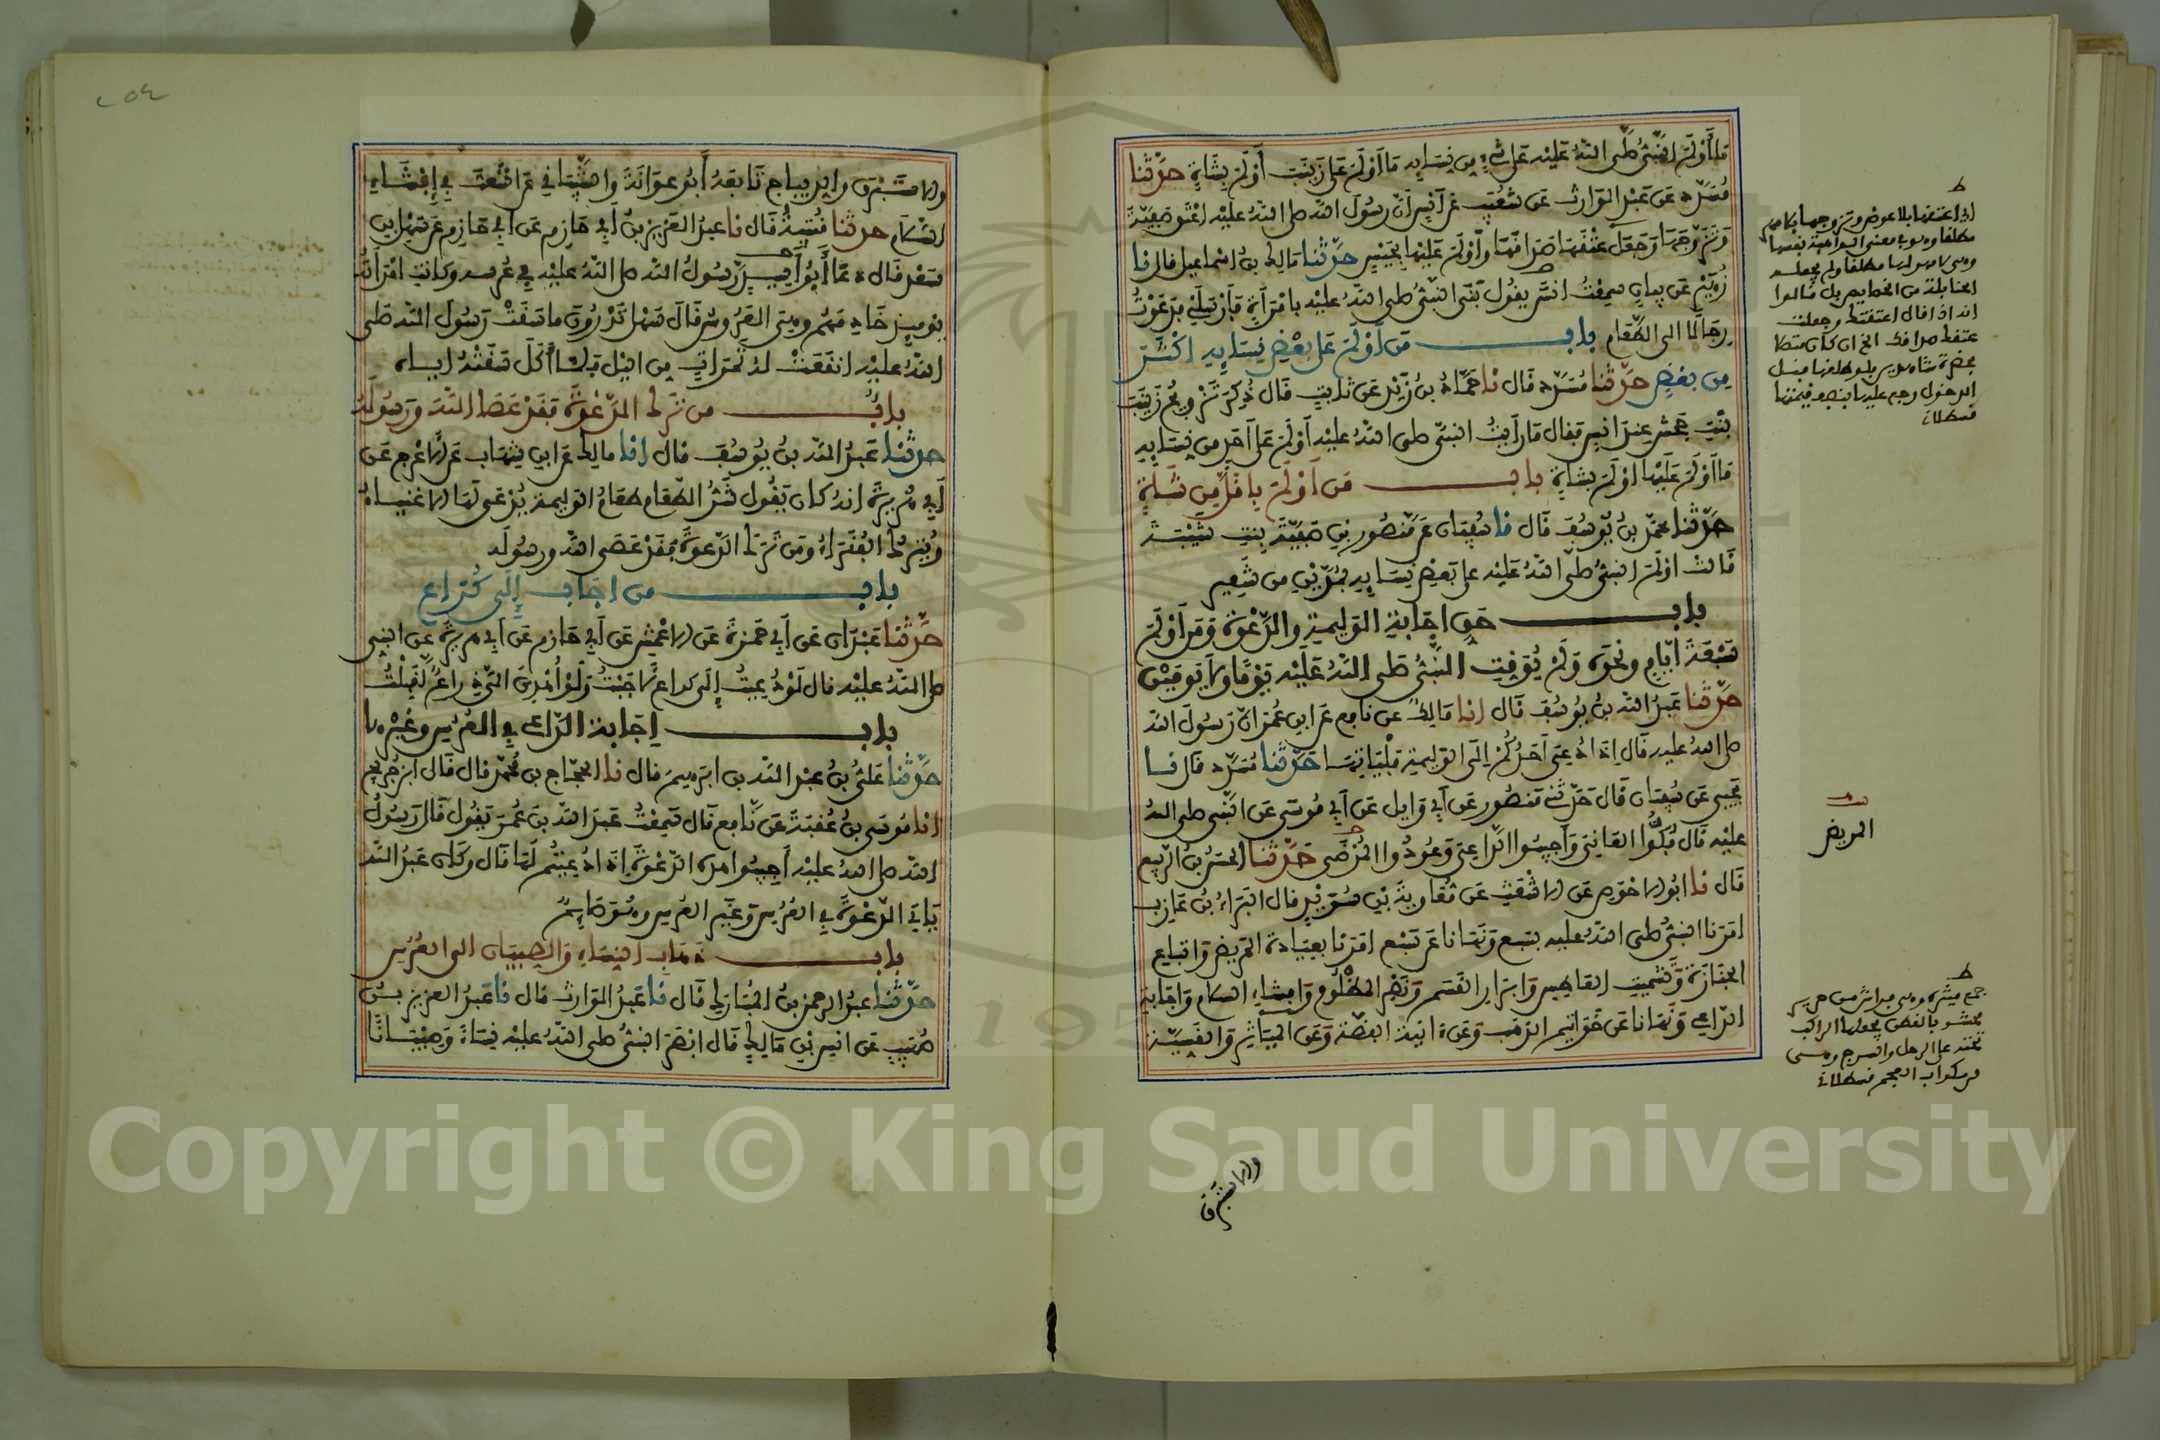 ما أولم النبي صلى الله عليه على شيء من نسايه ما أولم على زينب أولم بشاة حدثنا
مسدد عن عبد الوارث عن شعيب عن أنس أن رسول الله صلى الله عليه أعتق صفية
وتزوجها وجعل عتقها صداقها وأولم عليها بحيس حدثنا مالك بن اسماعيل قال نا
زهير عن بيان سمعت انس يقول بنى النبي صلى الله عليه بامرأة فأرسلني فدعوت
رجالا الى الطعام باب من أولم على بعض نسايه اكثر
من بعض حدثنا مسدد قال نا حماد بن زيد عن ثابت قال ذكر تزويج زينب
بنت جحش عند انس فقال ما رأيت النبي صلى الله عليه أولم على أحد من نسايه
ما أولم عليها أولم بشاة باب من أولم بأقل من شاة
حدثنا محمد بن يوسف قال نا سفيان عن منصور بن صفية بنت شيبة
قالت أولم النبي صلى الله عليه على بعض نسايه بمدين من شعير
باب حق اجابة الوليمة والدعوة ومن أولم
سبعة أيام ونحوه ولم يوقت النبي صلى الله عليه يوما ولا يومين
حدثنا عبد الله بن يوسف قال انا مالك عن نافع عن ابن عمر ان رسول الله
صلى الله عليه قال إذا دعي أحدكم إلى الوليمة فليأتها حدثنا مسدد قال نا
يحيى عن سفيان قال حدثني منصور عن أبي وايل عن أبي موسى عن النبي صلى الله
عليه قال فكوا العاني وأجيبوا الداعي وعودوا المرضى حدثنا الحسن بن الربيع
قال نا ابو الاحوص عن الاشعث عن معاوية بن سويد قال البراء بن عازب
امرنا النبي صلى الله عليه بسبع ونهانا عن سبع امرنا بعيادة المريض واتباع
الجنازة وتشميت العاطس وابرار القسم ونصر المظلوم وافشاء السلام واجابة
الداعي ونهانا عن خواتيم الذهب وعن انية الفضة وعن المياثر والقسية
المريض
قسطلاني
والاستبرق
والاستبرق والديباج تابعه أبو عوانة والشيباني عن اشعث في إفشاء
السلام حدثنا قتيبة قال نا عبد العزيز بن أبي حازم عن أبي حازم عن سهل بن
سعد قال دعا أبو أسيد رسول الله صلى الله عليه في عرسه وكانت امرأته
يومئذ خادمهم وهي العروس قال سهل تدرون ما سقت رسول الله صلى
الله عليه انقعت له تمرات من الليل فلما أكل سقته اياه
باب من ترك الدعوة فقد عصا الله ورسوله
حدثنا عبد الله بن يوسف قال انا مالك عن ابن شهاب عن الأعرج عن
أبي هريرة انه كان يقول شر الطعام طعام الوليمة يدعى لها الاغنياء
ويترك الفقراء ومن ترك الدعوة فقد عصى الله ورسوله
باب من اجاب إلى كراع
حدثنا عبدان عن أبي حمزة عن الاعمش عن أبي حازم عن أبي هريرة عن النبي
صلى الله عليه قال لو دعيت إلى كراع لاجبت ولو أهدي الي ذراع لقبلت
باب إجابة الداعي في العرس وغيرها
حدثنا علي بن عبد الله بن ابرهيم قال نا الحجاج بن محمد قال قال ابن جريج
انا موسى بن عقبة عن نافع قال سمعت عبد الله بن عمر يقول قال رسول
الله صلى الله عليه أجيبوا هذه الدعوة إذا دعيتم لها قال وكان عبد الله
ياتي الدعوة في العرس وغير العرس وهو صايم
باب ذهاب النساء والصبيان الى العرس
حدثنا عبد الرحمن بن المبارك قال نا عبد الوارث قال نا عبد العزيز بن
صهيب عن انس بن مالك قال ابصر النبي صلى الله عليه نساء وصبيانا
Copyright © King Saud University